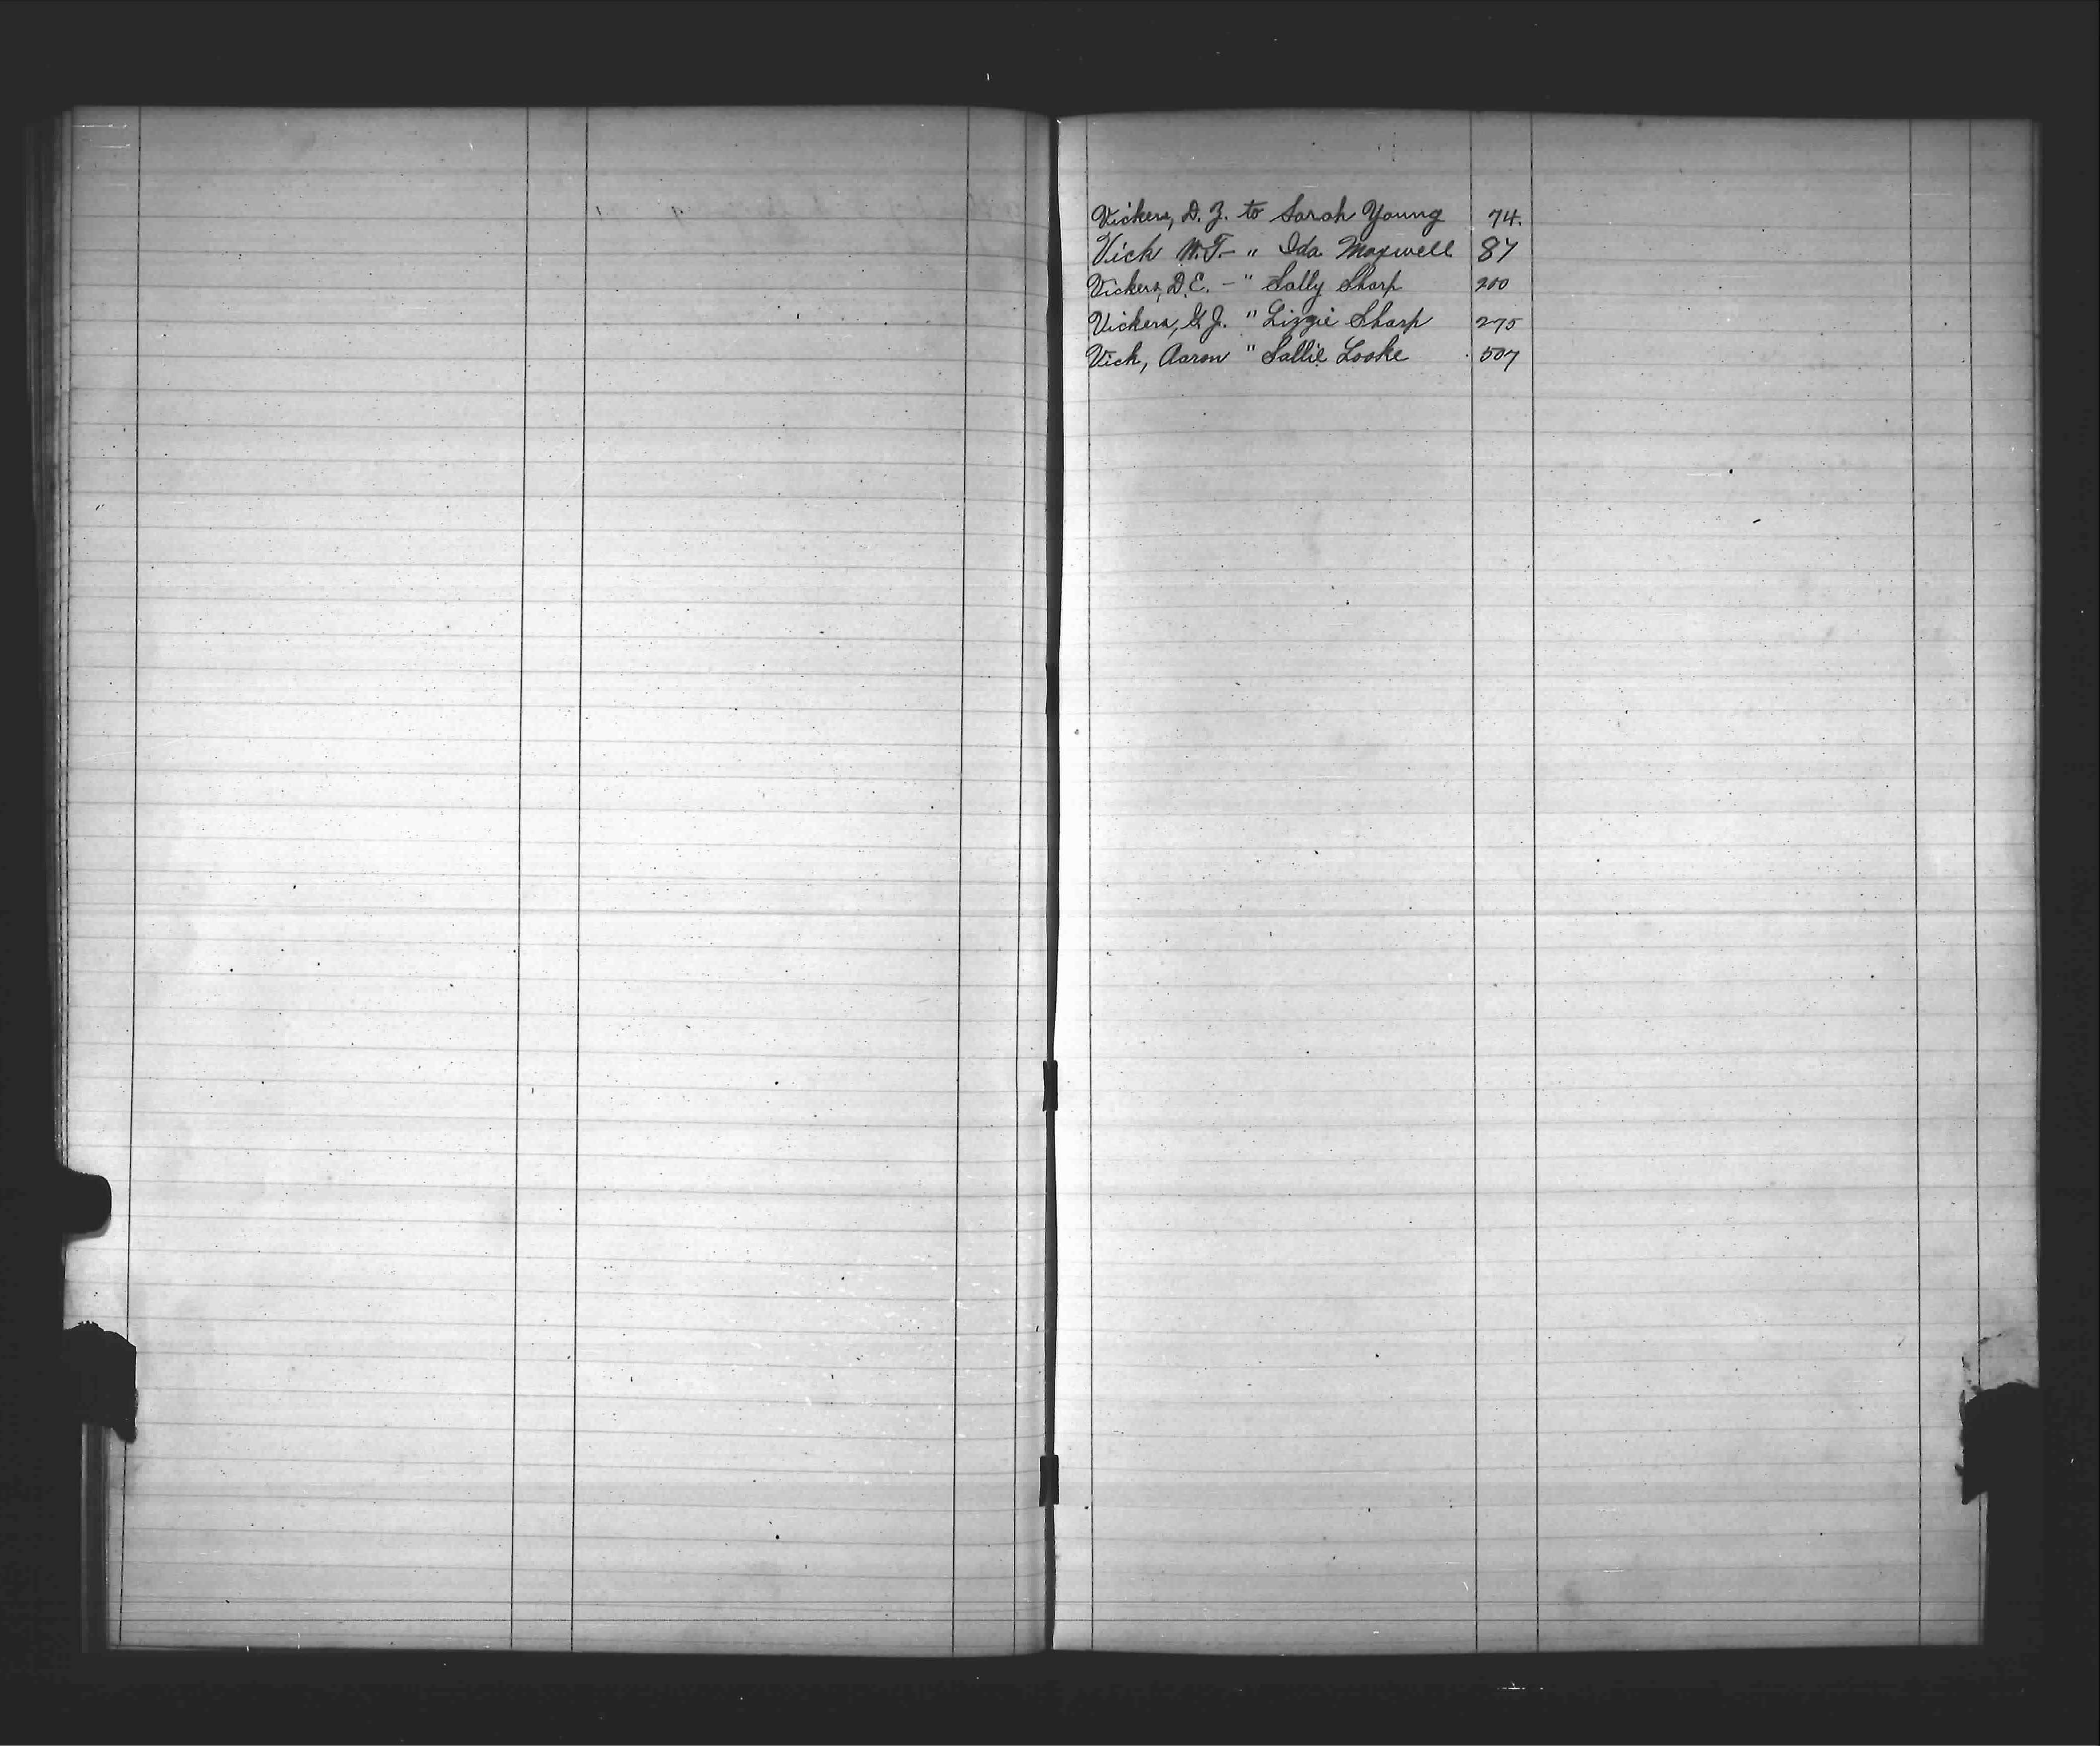 Vickers, D. Z. to Sarah Young 74.
Vick W. T. – " Ida Maxwell 87
Vickers, D. E. – " Sally Sharp 200
Vickers, G. J. " Lizzie Sharp 275
Vick, Aaron " Sallie Looke 507